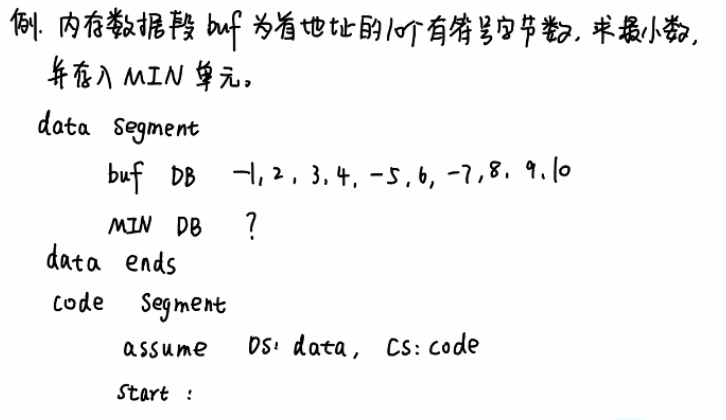 例. 内存数据段 buf 为首地址的10个有符号字节数, 求最小数,
并存入 MIN 单元。
data segment
buf DB -1, 2, 3, 4, -5, 6, -7, 8, 9, 10
MIN DB ?
data ends
code segment
assume DS: data, CS: code
start :